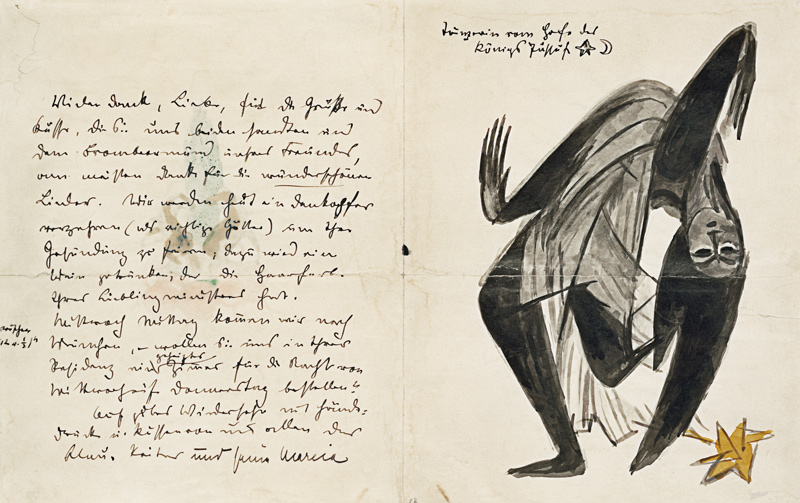 Vielen Dank, Liebe, für die Grüße und
Küsse, die Sie uns beiden sandten in
dem Brombeermund unsres Freundes,
am meisten Dank für die wunderschönen
Lieder. Wir werden heut ein Dankopfer
verzehren (als richtige Götter) um Ihre
Gesundung zu feiern; dazu wird ein
Wein getrunken, der die Haarfarb.
Ihres Lieblingministers hat.
Mittwoch Mittag kommen wir nach
München, – wollen Sie uns in Ihrer
Residenz ein geheiztes Zimmer für die Nacht von
Mittwoch auf Donnerstag bestellen?
Auf gutes Wiedersehn mit Hände-
drucke u. Küssen von uns allen der
Blau. Reiter und seine Mareia
Tänzerin vom Hofe des
Königs Jussuf